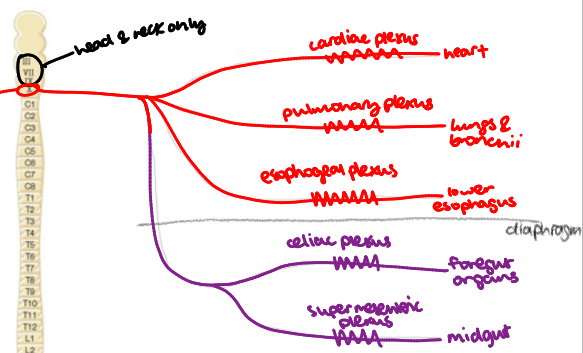 head & neck only
III
VII
IX
X
C1
C2
C3
C4
C5
C6
C7
C8
T1
T2
T3
T4
T5
T6
T7
T8
T9
T10
T11
T12
L1
L2
cardiac plexus
heart
pulmonary plexus
lungs &
bronchii
esophogeal plexus
lower
esophagus
diaphragm
celiac plexus
foregut
organs
super mesenteric
plexus
midgut